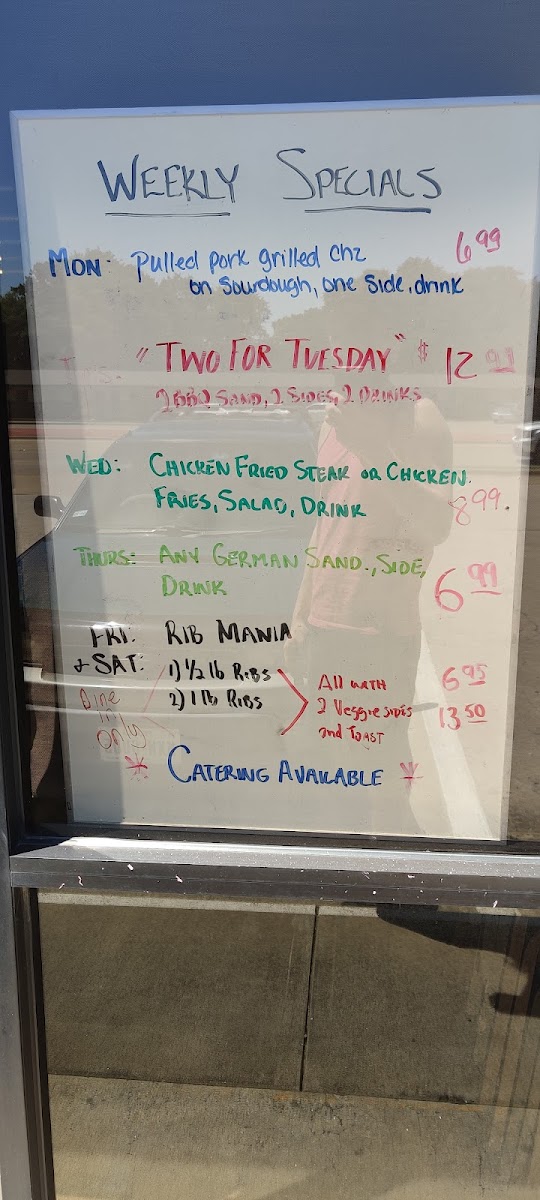 WEEKLY SPECIALS
MON: Pulled pork grilled chz 6 99
on Sourdough, one side, drink
TUES: "TWO FOR TUESDAY" $ 12
2 BBQ SAND, 2 SIDES, 2 DRINKS
WED: CHICKEN FRIED STEAK OR CHICKEN.
FRIES, SALAD, DRINK 8 99.
THURS: ANY GERMAN SAND., SIDE,
DRINK 6 99
FRI. RIB MANIA
+ SAT: 1) 1/2 lb RIBS
2) 1 lb RIBS
Dine
in
only
All WITH 6 95
2 Veggie sides 13 50
and TOAST
CATERING AVAILABLE